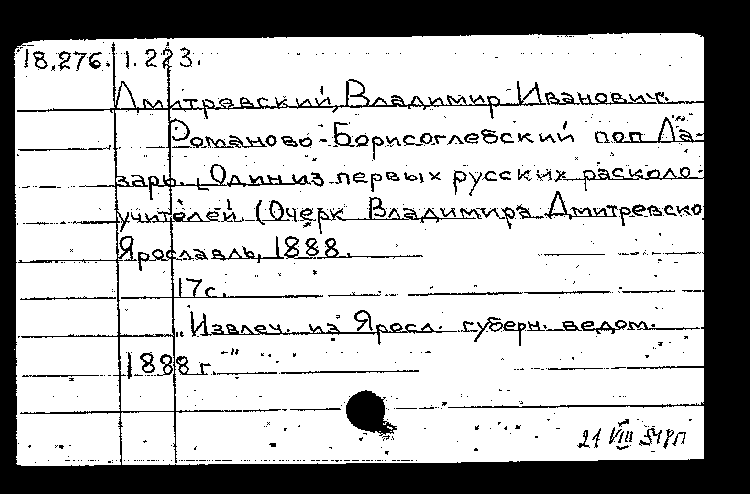 18.276. 1.223.
Дмитревский, Владимир Иванович.
Романово-Борисоглебский поп Ла-
зарь. Один из первых русских расколо-
учителей. (Очерк Владимира Дмитревско
Ярославль, 1888.
17с.
"Извлеч. из Яросл. губерн. ведом.
1888 г."
21 VIII